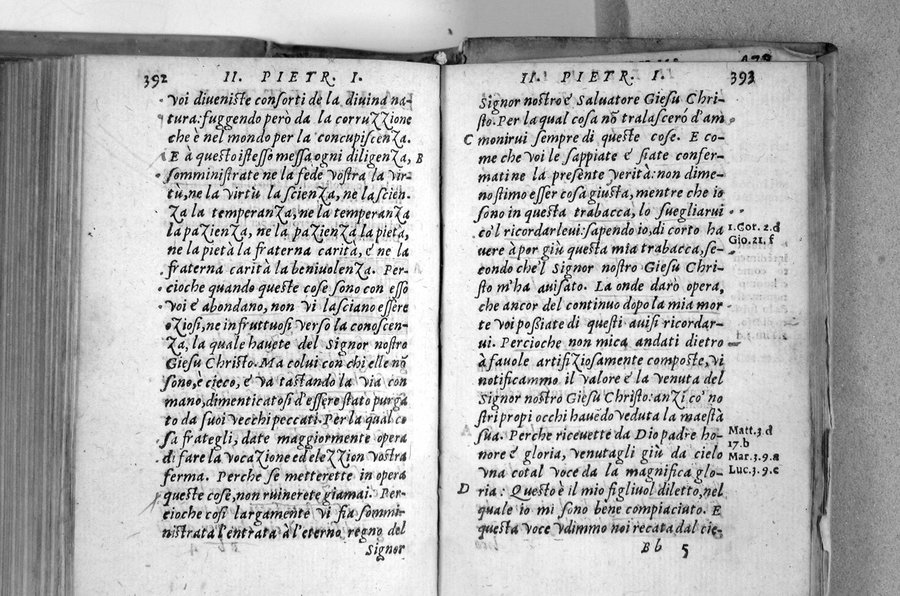 392 II. PIETR. I.
voi diueniste consorti de la diuina na-
tura: fuggendo però da la corruzzione
che è nel mondo per la concupiscenza.
E à questo istesso messa ogni diligenza, B
somministrate ne la fede vostra la vir-
tù, ne la virtù la scienza, ne la scien-
za la temperanza, ne la temperanza
la pazienza, ne la pazienza la pietà,
ne la pietà la fraterna carità, e ne la
fraterna carità la beniuolenza. Per-
cioche quando queste cose sono con esso
voi e abondano, non vi lasciano essere
oziosi, ne infruttuosi verso la conoscen-
za, la quale hauete del Signor nostro
Giesu Christo. Ma colui con chi elle nõ
sono, è cieco, e va tastando la via con
mano, dimenticatosi d'essere stato purga
to da suoi vecchi peccati. Per la qual co
sa frategli, date maggiormente opera
di fare la vocazione ed elezzion vostra
ferma. Perche se metterette in opera
queste cose, non ruinerete giamai. Per-
cioche cosi largamente vi sia sommi-
nistrata l'entrata à l'eterno regno del
Signor
II. PIETR. I. 393
Signor nostro e Saluatore Giesu Chri-
sto. Per la qual cosa nõ tralascerò d'am
C monirui sempre di queste cose. E co-
me che voi le sappiate e siate confer-
mati ne la presente verità: non dime-
no stimo esser cosa giusta, mentre che io
sono in questa trabacca, lo suegliarui
co'l ricordarleui: sapendo io, di corto ha
1. Cor. 2. d
uere à por giù questa mia trabacca, se-
Gio. 21. f
condo che'l Signor nostro Giesu Chri-
sto m'ha auisato. La onde darò opera,
che ancor del continuo dopo la mia mor
te voi possiate di questi auisi ricordar-
ui. Percioche non mica andati dietro
à fauole artifiziosamente composte, vi
notificammo il valore e la venuta del
Signor nostro Giesu Christo: anzi co' no
stri propi occhi hauẽdo veduta la maestà
sua. Perche riceuette da Dio padre ho-
Matt. 3. d
17. b
nore e gloria, venutagli giù da cielo
Mar. 3. 9. a
vna cotal voce da la magnifica glo-
Luc. 3. 9. e
D ria: Questo è il mio figliuol diletto, nel
quale io mi sono bene compiaciuto. E
questa voce vdimmo noi recata dal cie-
Bb 5